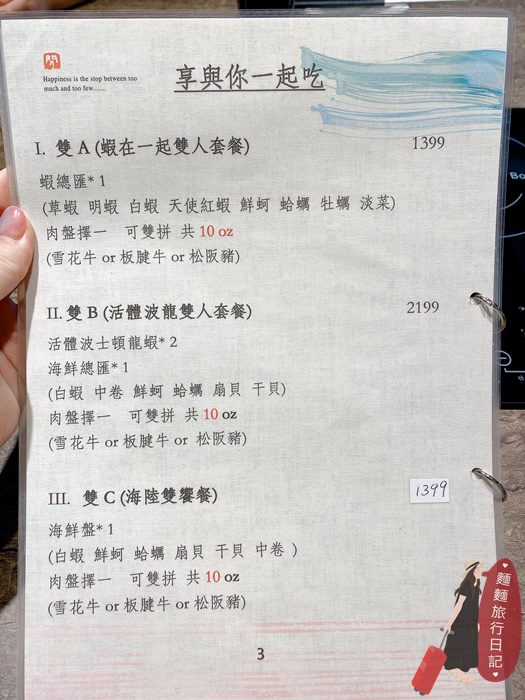 Happiness is the stop between too
much and too few......
享與你一起吃
I. 雙 A (蝦在一起雙人套餐) 1399
蝦總匯* 1
(草蝦 明蝦 白蝦 天使紅蝦 鮮蚵 蛤蠣 牡蠣 淡菜)
肉盤擇一 可雙拼 共 10 oz
(雪花牛 or 板腱牛 or 松阪豬)
II. 雙 B (活體波龍雙人套餐) 2199
活體波士頓龍蝦* 2
海鮮總匯* 1
(白蝦 中卷 鮮蚵 蛤蠣 扇貝 干貝)
肉盤擇一 可雙拼 共 10 oz
(雪花牛 or 板腱牛 or 松阪豬)
III. 雙 C (海陸雙饗餐) 1399
海鮮盤* 1
(白蝦 鮮蚵 蛤蠣 扇貝 干貝 中卷 )
肉盤擇一 可雙拼 共 10 oz
(雪花牛 or 板腱牛 or 松阪豬)
3
Bo
麵麵旅行日記